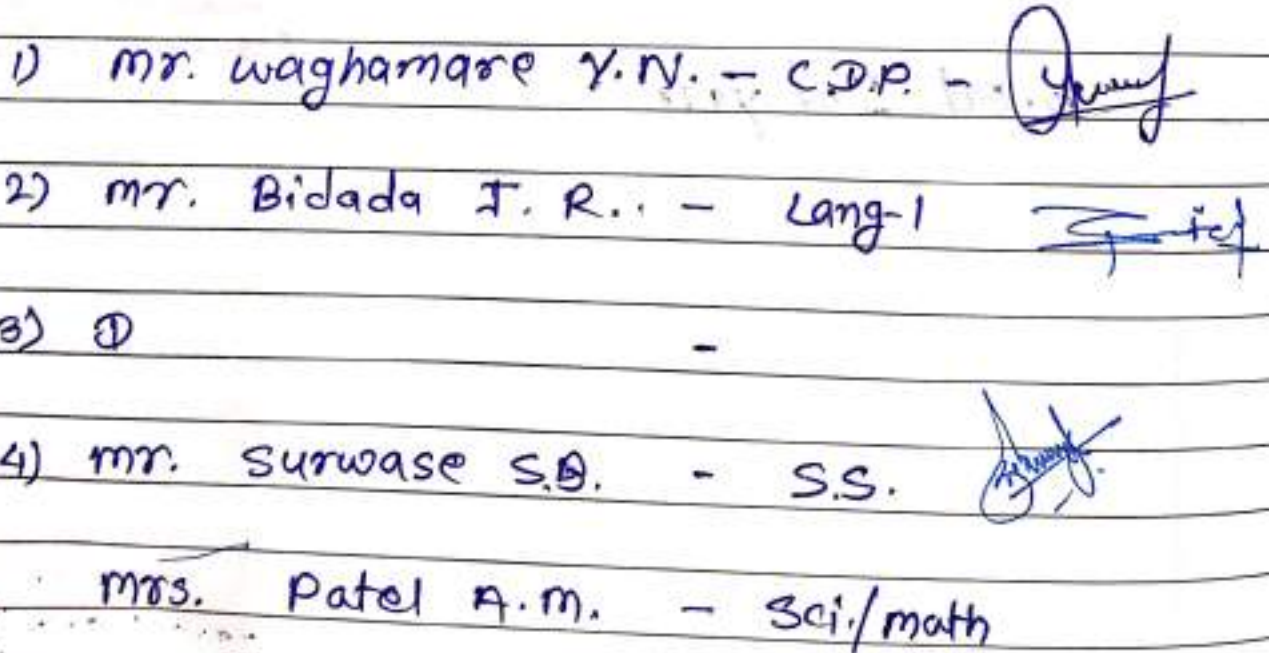 1) mr. waghamare Y.N. - C.D.P. -
2) mr. Bidada I. R.. - Lang-1
3) ① -
4) mr. surwase S.B. - S.S.
mrs. Patel A.m. - Sci./math